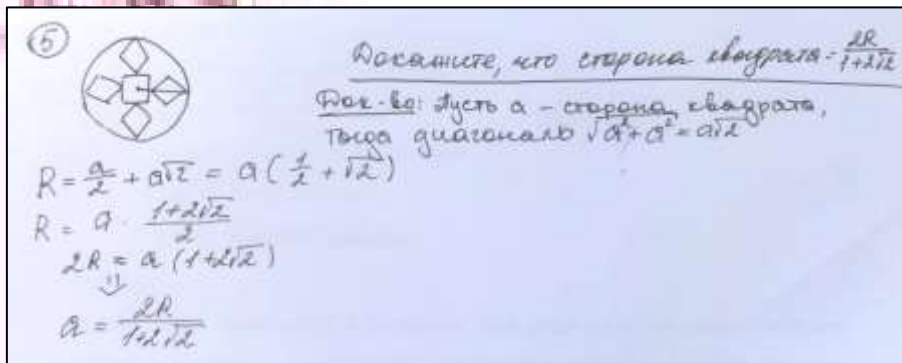 5
Докажите, что сторона квадрата - 2R/(1+2√2)
Док-во: Пусть a - сторона квадрата,
тогда диагональ √(a²+a²) = a√2
R = a/2 + a√2 = a(1/2 + √2)
R = a · (1+2√2)/2
2R = a(1+2√2)
⇓
a = 2R/(1+2√2)